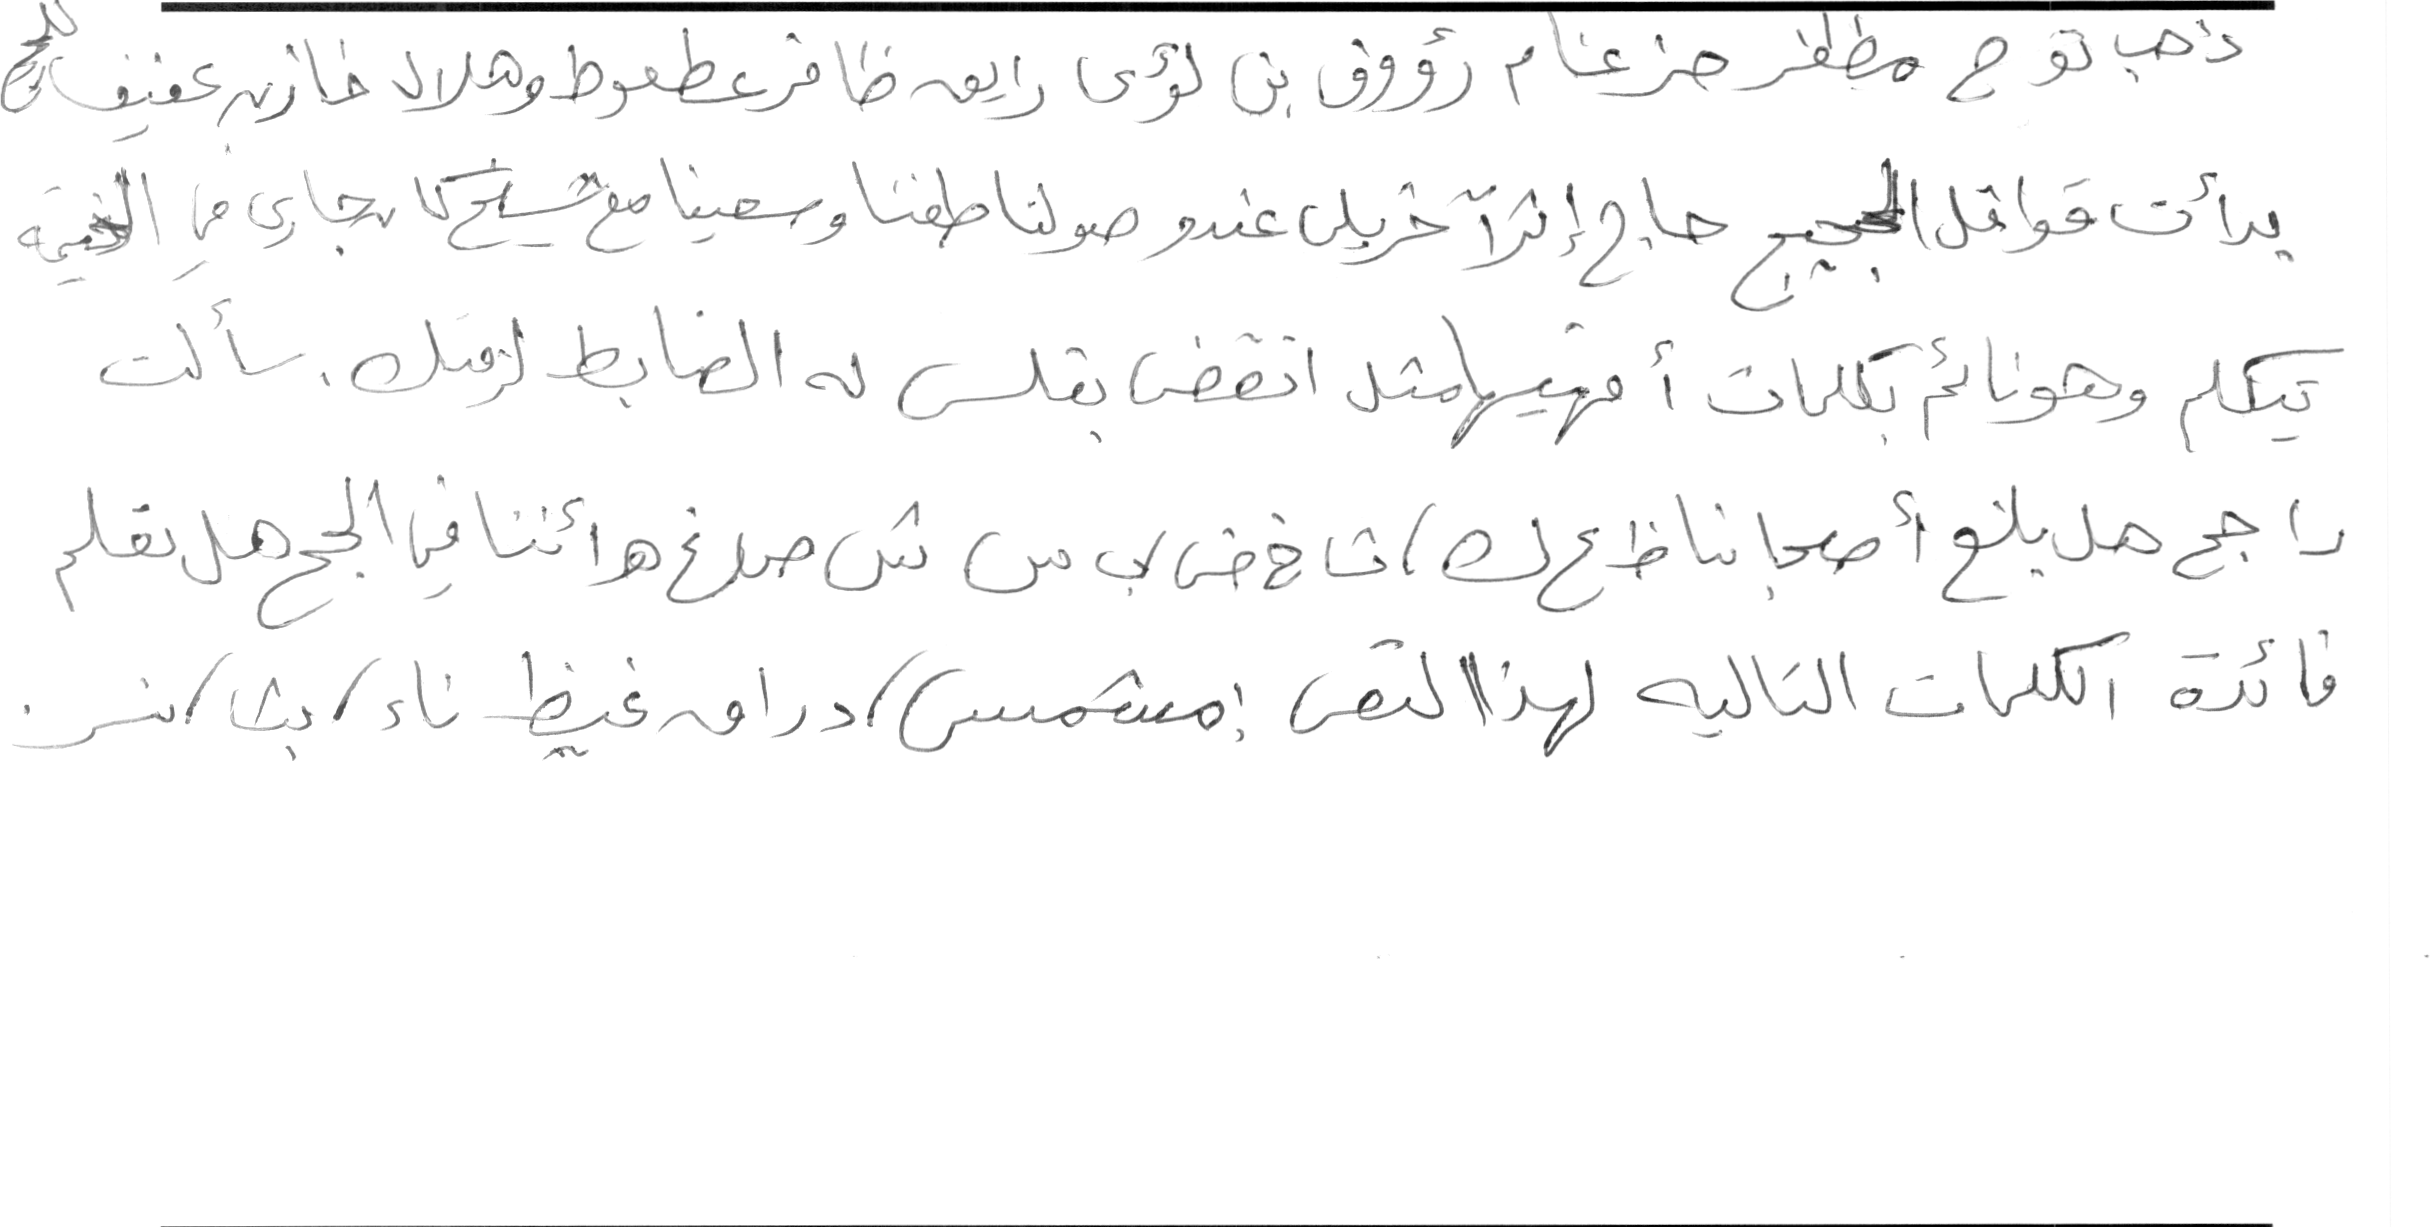 ذهب نوح مظفر ضرغام رؤوف بن لؤى رايع ظافر عطعوط وهلال خازن عفيف للحج
بدأت قوافل الحجيج حاج إثر آخر بل عند وصولنا طفنا وسعينا مع شيخ كان جارى فى الخيمة
يتكلم وهو نائم بكلمات أفهمها مثل انقض بقلس له الضابط لزملك . سألت
راجح هل بلغ أصحابنا ظ ع ك ث خ ض ب س ش صلاغ هوائنا فى الحج هل تعلم
فائدة الكلمات التاليه لهذا النص : مشمس / درامه غيظ ناء / بث / نسر .